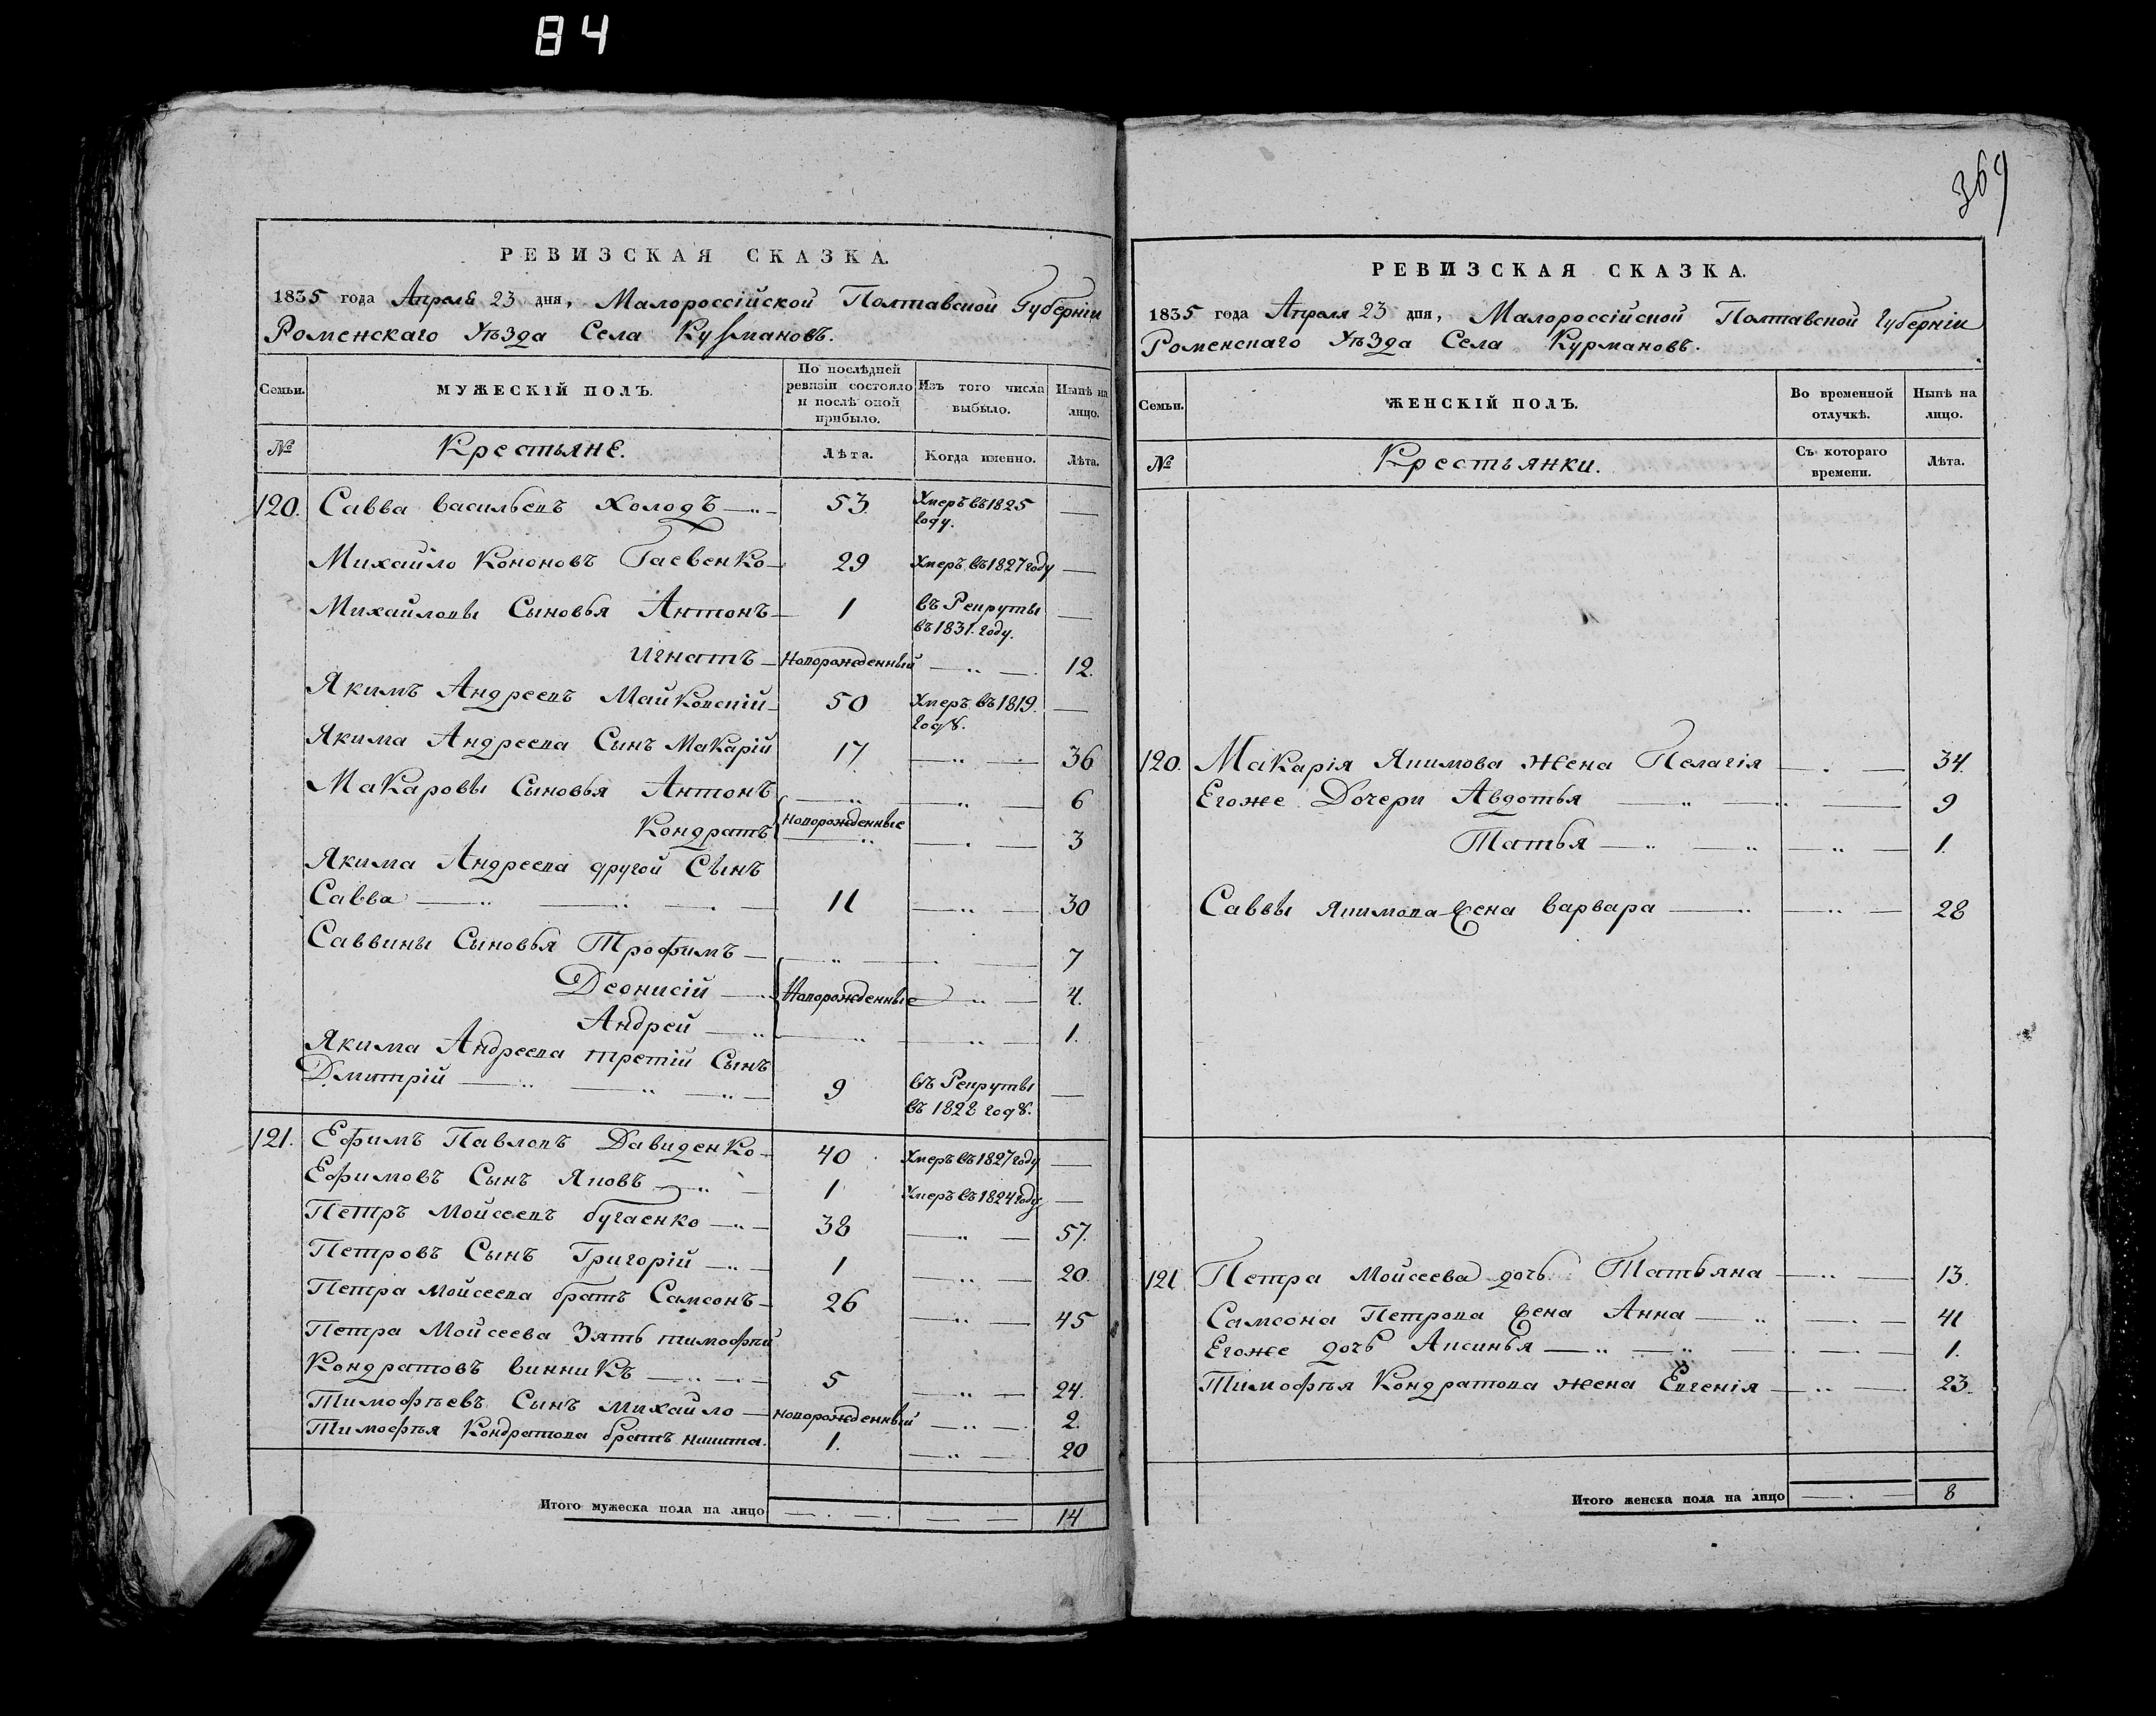 84
369
РЕВИЗСКАЯ СКАЗКА.
1835 года Апреля 23 дня, Малороссійской Полтавской Губерніи
Роменскаго Уѣзда Села Курмановъ.
Семьи. МУЖЕСКІЙ ПОЛЪ. По послѣдней ревизіи состояло и послѣ оной прибыло. Изъ того числа выбыло. Нынѣ на лицо.
№ Крестьяне. Лѣта. Когда именно. Лѣта.
120. Савва Васильевъ Холодъ 53 Умеръ въ 1825 году. —
Михайло Кононовъ Гаевенко 29 Умеръ въ 1827 году —
Михайловы Сыновья Антонъ 1 въ Рекруты въ 1831. году. —
Игнатъ Новорожденный — 12.
Якимъ Андреевъ Майковскій 50 Умеръ въ 1819. годѣ. —
Якима Андреева Сынъ Макарій 17 — 36
Макаровы Сыновья Антонъ — — 6
Новорожденные
Кондратъ — — 3
Якима Андреева другой Сынъ
Савва 11 — 30
Саввины Сыновья Трофимъ — — 7
Деонисій Новорожденные — 4.
Андрей — — 1.
Якима Андреева третій Сынъ
Дмитрій 9 въ Рекруты въ 1822 годѣ. —
121. Ефимъ Павловъ Давиденко 40 Умеръ въ 1827 году —
Ефимовъ Сынъ Яковъ 1 Умеръ въ 1824 году —
Петръ Мойсеевъ Бугаенко 38 — 57.
Петровъ Сынъ Григорій 1 — 20.
Петра Мойсеева братъ Самсонъ 26 — 45
Петра Мойсеева Зять Тимофѣй
Кондратовъ Винникъ 5 — 24.
Тимофѣевъ Сынъ Михайло Новорожденный — 2.
Тимофѣя Кондратова братъ Никита. 1. — 20
Итого мужеска пола на лицо — — 14
РЕВИЗСКАЯ СКАЗКА.
1835 года Апреля 23 дня, Малороссійской Полтавской Губерніи
Роменскаго Уѣзда Села Курмановъ.
Семьи. ЖЕНСКІЙ ПОЛЪ. Во временной отлучкѣ. Нынѣ на лицо.
№ Крестьянки. Съ котораго времени. Лѣта.
120. Макарія Якимова жена Пелагія — 34.
Егоже Дочери Авдотья — 9
Татья — 1.
Саввы Якимова жена Варвара — 28
121. Петра Мойсеева дочь Татьяна — 13.
Самсона Петрова жена Анна — 41
Егоже дочь Аксинья — 1.
Тимофѣя Кондратова жена Евгенія — 23.
Итого женска пола на лицо — 8